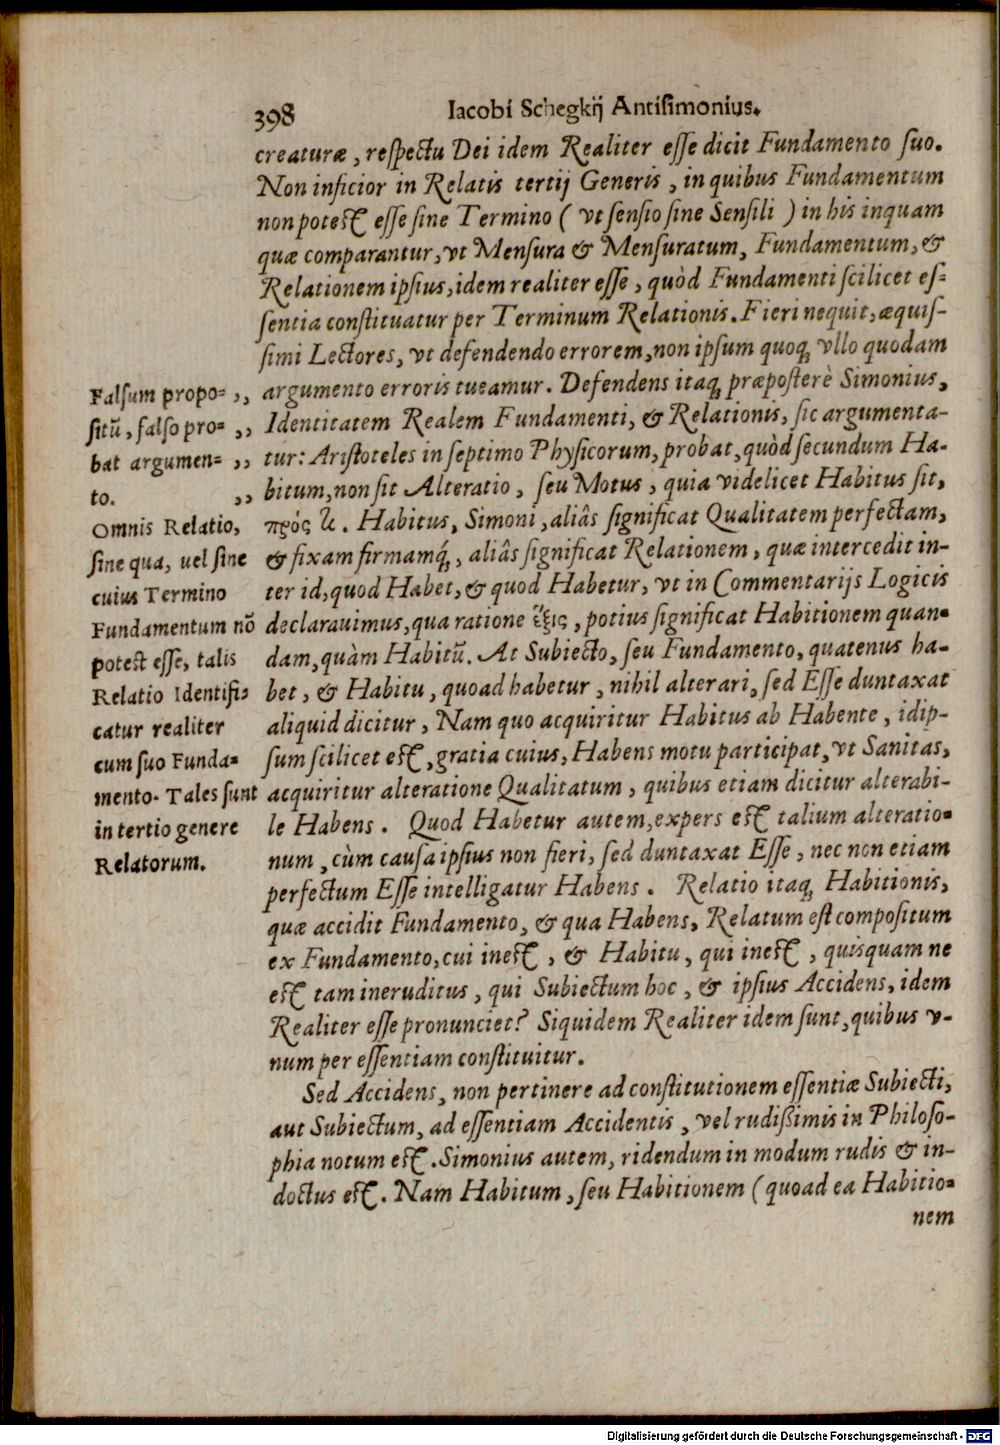 398 Iacobi Schegkij Antisimonius.
creaturæ, respectu Dei idem Realiter esse dicit Fundamento suo.
Non inficior in Relatis tertij Generis, in quibus Fundamentum
non potest esse sine Termino ( vt sensio sine Sensili ) in his inquam
quæ comparantur, vt Mensura & Mensuratum, Fundamentum, &
Relationem ipsius, idem realiter esse, quòd Fundamenti scilicet es-
sentia constituatur per Terminum Relationis. Fieri nequit, æquis-
simi Lectores, vt defendendo errorem, non ipsum quoq; vllo quodam
argumento erroris tueamur. Defendens itaq; præposterè Simonius,
Identitatem Realem Fundamenti, & Relationis, sic argumenta-
tur: Aristoteles in septimo Physicorum, probat, quòd secundum Ha-
bitum, non sit Alteratio, seu Motus, quia videlicet Habitus sit,
πρός τι. Habitus, Simoni, aliâs significat Qualitatem perfectam,
& fixam firmamq́;, aliâs significat Relationem, quæ intercedit in-
ter id, quod Habet, & quod Habetur, vt in Commentarijs Logicis
declarauimus, qua ratione ἕξις, potius significat Habitionem quan-
dam, quàm Habitũ. At Subiecto, seu Fundamento, quatenus ha-
bet, & Habitu, quoad habetur, nihil alterari, sed Esse duntaxat
aliquid dicitur, Nam quo acquiritur Habitus ab Habente, idip-
sum scilicet est, gratia cuius, Habens motu participat, vt Sanitas,
acquiritur alteratione Qualitatum, quibus etiam dicitur alterabi-
le Habens. Quod Habetur autem, expers est talium alteratio-
num, cùm causa ipsius non fieri, sed duntaxat Esse, nec non etiam
perfectum Esse intelligatur Habens. Relatio itaq; Habitionis,
quæ accidit Fundamento, & qua Habens, Relatum est compositum
ex Fundamento, cui inest, & Habitu, qui inest, quisquam ne
est tam ineruditus, qui Subiectum hoc, & ipsius Accidens, idem
Realiter esse pronunciet? Siquidem Realiter idem sunt, quibus v-
num per essentiam constituitur.
Sed Accidens, non pertinere ad constitutionem essentiæ Subiecti,
aut Subiectum, ad essentiam Accidentis, vel rudißimis in Philoso-
phia notum est. Simonius autem, ridendum in modum rudis & in-
doctus est. Nam Habitum, seu Habitionem (quoad ea Habitio-
nem
Falsum propo- ,,
sitũ, falso pro- ,,
bat argumen- ,,
to. ,,
Omnis Relatio,
sine qua, uel sine
cuius Termino
Fundamentum nõ
potest esse, talis
Relatio Identifi-
catur realiter
cum suo Funda-
mento. Tales sunt
in tertio genere
Relatorum.
Digitalisierung gefördert durch die Deutsche Forschungsgemeinschaft - DFG